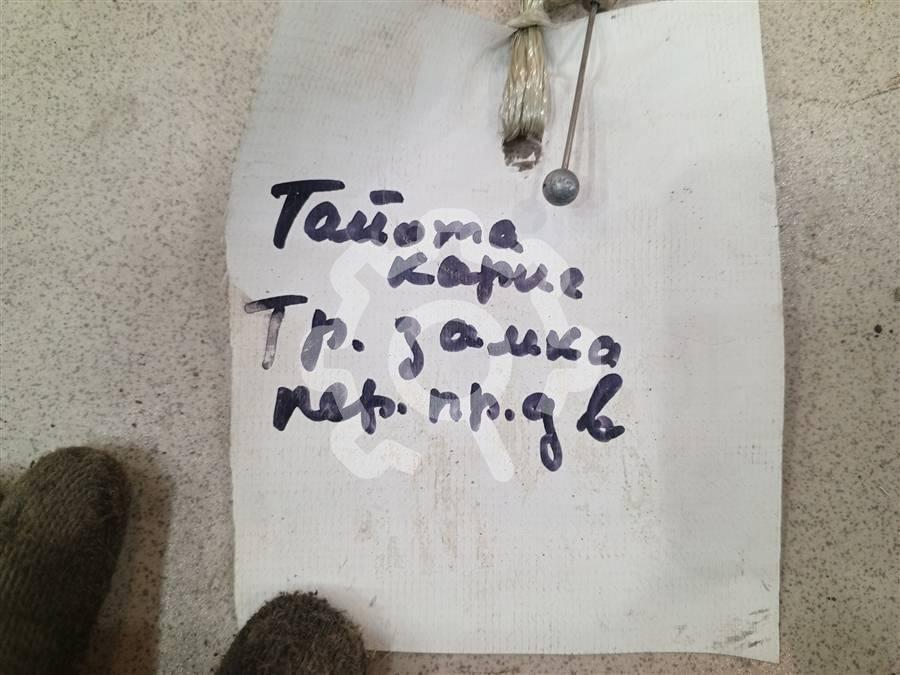 Тайота
карие
Тр. замка
пер. пр. дв